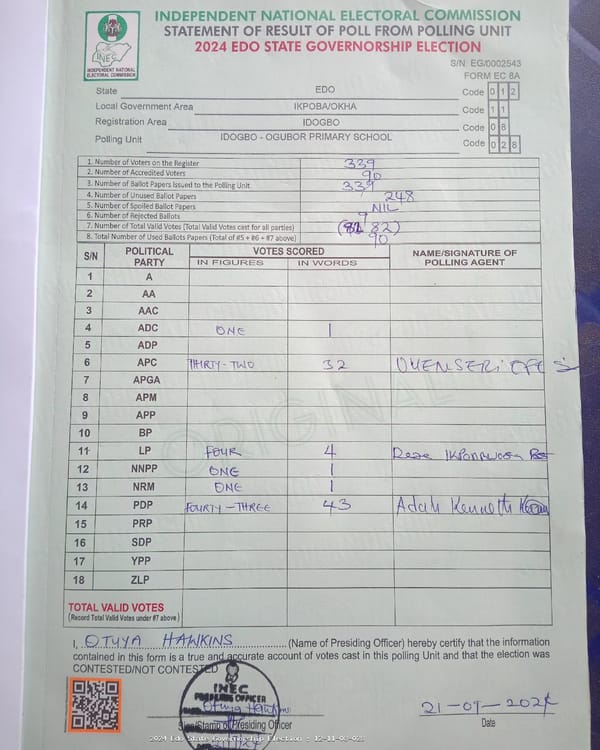 INDEPENDENT NATIONAL ELECTORAL COMMISSION
STATEMENT OF RESULT OF POLL FROM POLLING UNIT
2024 EDO STATE GOVERNORSHIP ELECTION
INEC
INDEPENDENT NATIONAL
ELECTORAL COMMISSION
S/N: EG/0002543
FORM EC 8A
State EDO Code 0 1 2
Local Government Area IKPOBA/OKHA Code 1 1
Registration Area IDOGBO Code 0 8
Polling Unit IDOGBO - OGUBOR PRIMARY SCHOOL Code 0 2 8
1. Number of Voters on the Register 339
2. Number of Accredited Voters 90
3. Number of Ballot Papers Issued to the Polling Unit 339
4. Number of Unused Ballot Papers 248
5. Number of Spoiled Ballot Papers NIL
6. Number of Rejected Ballots
7. Number of Total Valid Votes (Total Valid Votes cast for all parties) 82)
8. Total Number of Used Ballots Papers (Total of #5 + #6 + #7 above) 90
S/N POLITICAL PARTY VOTES SCORED NAME/SIGNATURE OF POLLING AGENT
IN FIGURES IN WORDS
1 A
2 AA
3 AAC
4 ADC ONE 1
5 ADP
6 APC THIRTY-TWO 32
7 APGA
8 APM
9 APP
10 BP
11 LP FOUR 4
12 NNPP ONE 1
13 NRM ONE 1
14 PDP FOURTY-THREE 43 Adah Kenneth
15 PRP
16 SDP
17 YPP
18 ZLP
ORIGINAL
TOTAL VALID VOTES
(Record Total Valid Votes under #7 above)
I, OTUYA HAWKINS (Name of Presiding Officer) hereby certify that the information
contained in this form is a true and accurate account of votes cast in this polling Unit and that the election was
CONTESTED/NOT CONTESTED
INEC
PRESIDING OFFICER
21-09-2024
Sign/Stamp of Presiding Officer
Date
2024 Edo State Governorship Election - 12-11-08-028